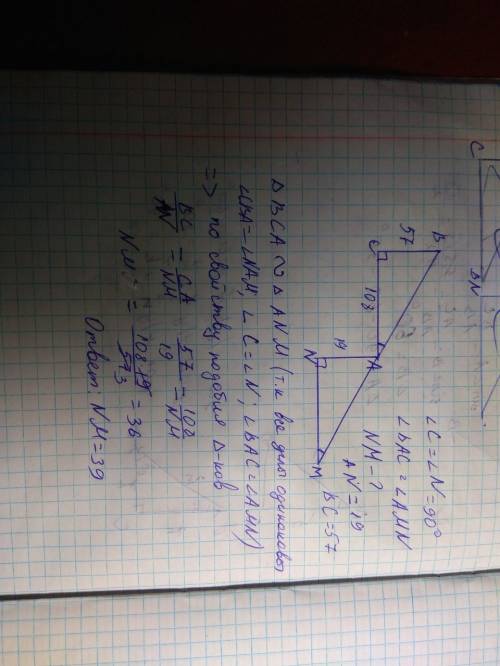 C
BN
B
57
C
108
A
19
N
M
∠C=∠N=90°
∠BAC=∠AMN
NM-?
AN=19
BC=57
△BCA ∾ △ANM (т.к все углы одинаковы
∠CBA=∠NAM; ∠C=∠N; ∠BAC=∠AMN)
=> по свойству подобия △-ков
BC/AN = CA/NM  57/19 = 108/NM
NM = 108·19/57 3 = 36
Ответ: NM=39